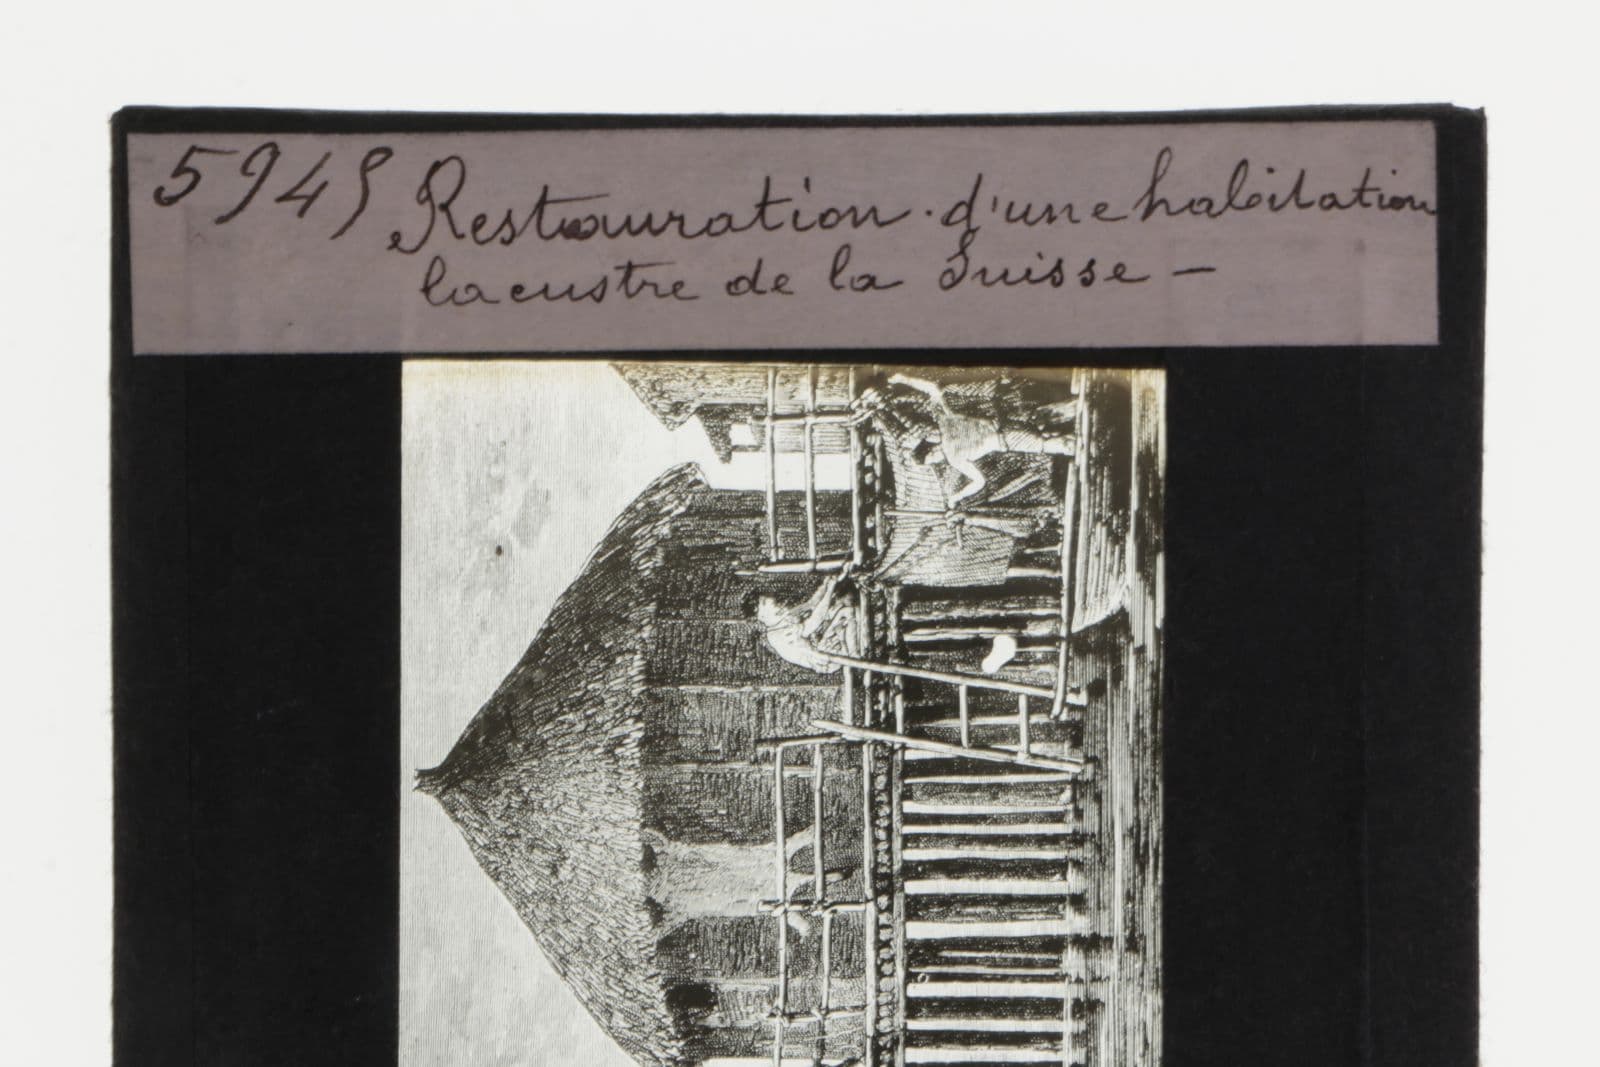 5945 Restauration d'une habitation
lacustre de la Suisse -